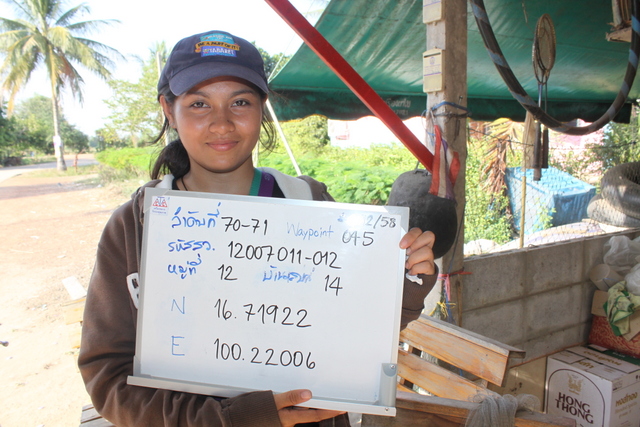 ลำดับที่ 70-71 Waypoint 045
2/58
รหัสรว. 12007011-012
หมู่ที่ 12 บ้านเลขที่ 14
N 16.71922
E 100.22006
HONG THONG